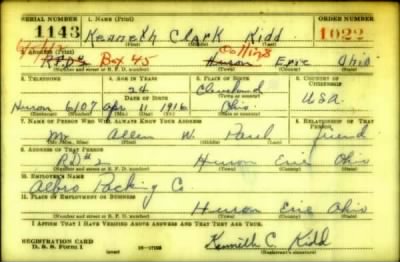 SERIAL NUMBER 1. NAME (Print) ORDER NUMBER
1143 Kenneth Clark Kidd 1022
2. ADDRESS (Print) Collins
R.F.D. Box 45 Huron Erie Ohio
(Number and street or R. F. D. number) (Town) (County) (State)
3. TELEPHONE 4. AGE IN YEARS 5. PLACE OF BIRTH 6. COUNTRY OF CITIZENSHIP
24 Cleveland
DATE OF BIRTH (Town or county)
Huron 6107 Apr 11 1916 Ohio U.S.A.
(Mo.) (Day) (Yr.) (State or country)
7. NAME OF PERSON WHO WILL ALWAYS KNOW YOUR ADDRESS 8. RELATIONSHIP OF THAT PERSON
Mr. Allen W. Paul friend
(Mr., Mrs., Miss) (First) (Middle) (Last)
9. ADDRESS OF THAT PERSON
R.D.#2 Huron Erie Ohio
(Number and street or R. F. D. number) (Town) (County) (State)
10. EMPLOYER'S NAME
Packing C.
11. PLACE OF EMPLOYMENT OR BUSINESS
Huron Erie Ohio
(Number and street or R. F. D. number) (Town) (County) (State)
I AFFIRM THAT I HAVE VERIFIED ABOVE ANSWERS AND THAT THEY ARE TRUE.
REGISTRATION CARD
D. S. S. Form 1 Kenneth C. Kidd
(Registrant's signature)